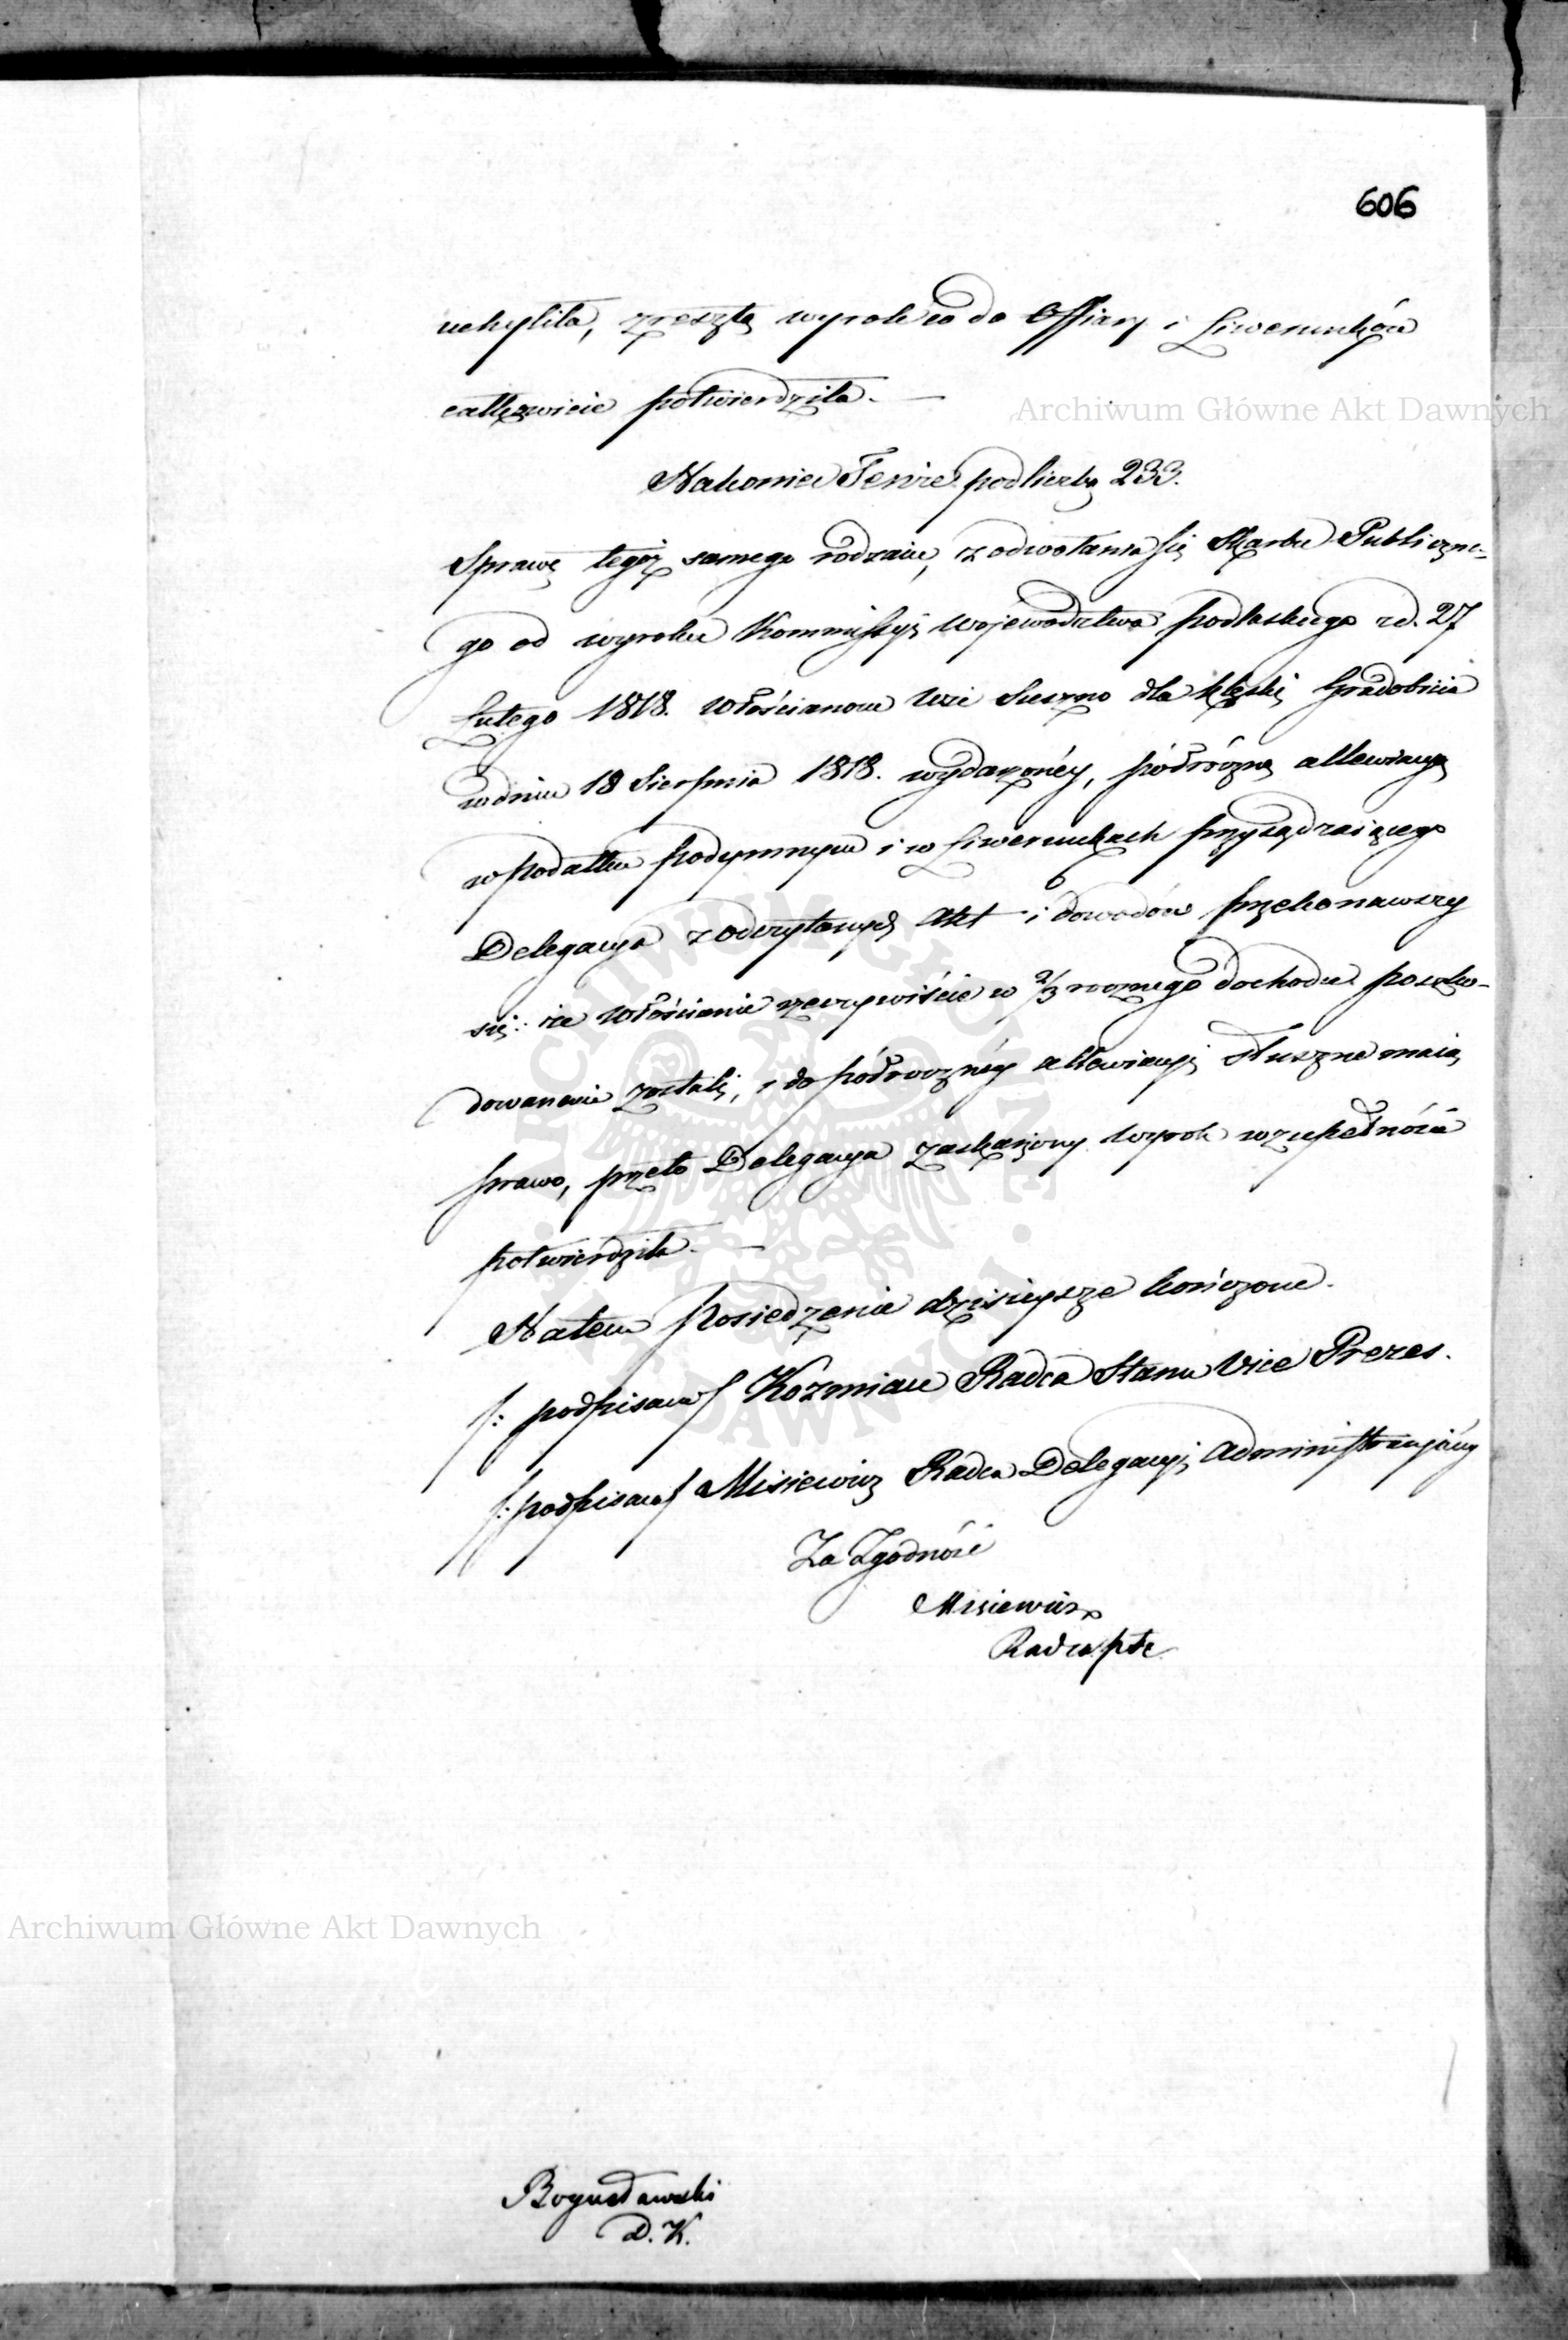 606
uchyliła, zresztą wyrok co do Offiary i Liwerunków
całkowicie potwierdziła. —
Archiwum Główne Akt Dawnych
Nakoniec Tenże pod liczbą 233.
Sprawę tegoż samego rodzaiu, z odwołania się Skarbu Publiczne-
go od wyroku Kommissyi Województwa Podlaskiego z d. 27
Lutego 1818. Włościanom Wsi Suszno dla klęski Gradobicia
w dniu 18 Sierpnia 1818. wydarzonéy, półroczną allewiacyą
w Podatku Podymnym i w Liwerunkach przysądzaiącego
Delegacya z odczytanych Akt i dowodów przekonawszy
się: że Włościanie rzeczywiście w 2/3 rocznego dochodu poszko-
dowanemi zostali, i do półrocznéy allewiacyi słuszne maią
prawo, przeto Delegacya zaskarżony Wyrok w zupełności
potwierdziła. —
Na tem Posiedzenie dzisieysze kończono.
/: podpisano/ Koźmian Radca Stanu Vice Prezes.
/: podpisano/ Misiewicz Radca Delegacyi Administracyjnéy
Za Zgodność
Misiewicz
Radca
Archiwum Główne Akt Dawnych
Bogusławski
D. K.
ARCHIWUM GŁÓWNE · AKT DAWNYCH ·